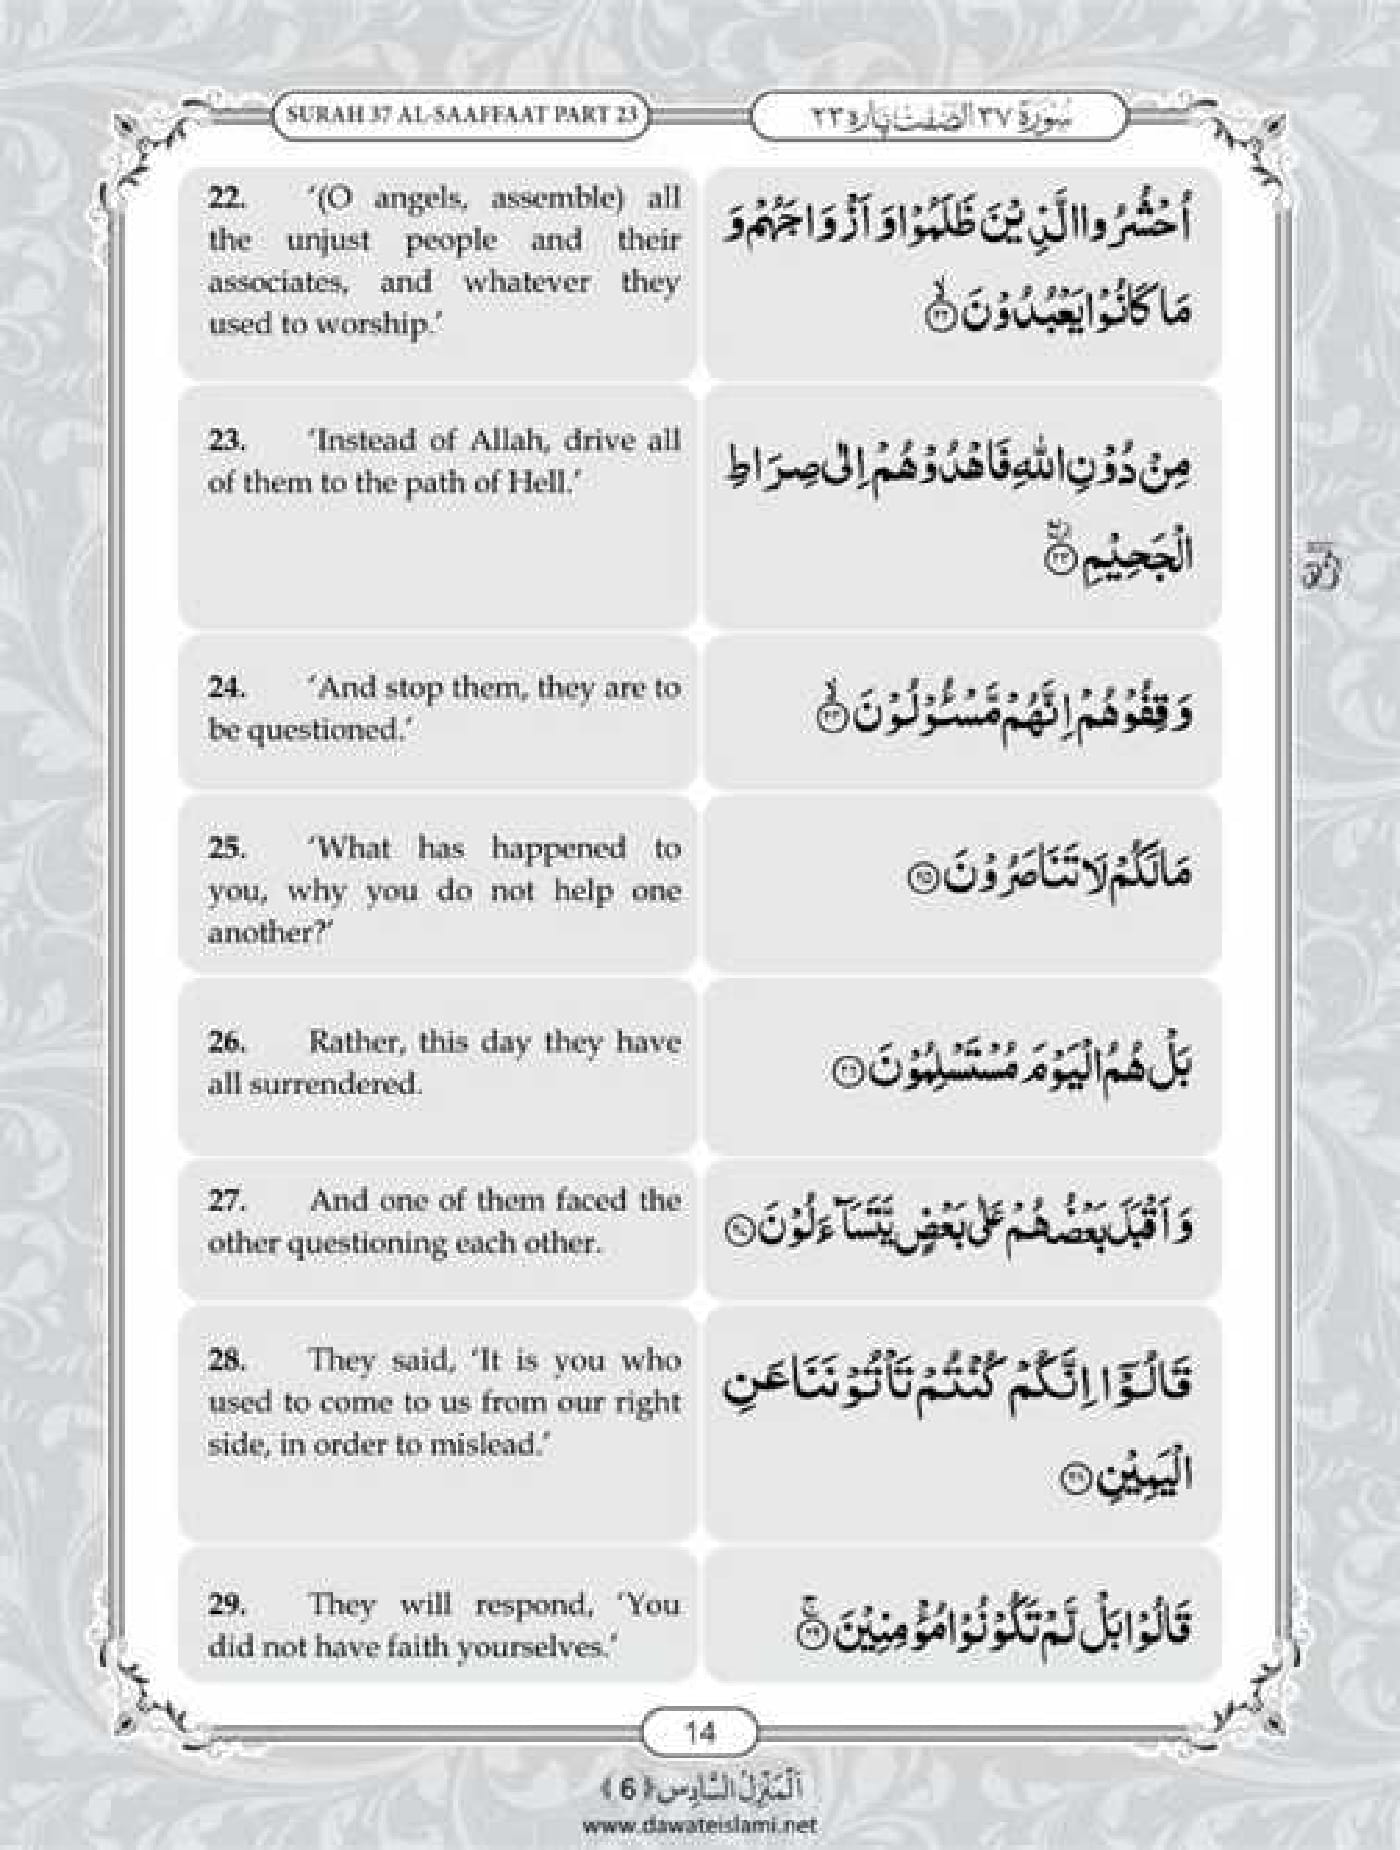 SURAH 37 AL-SAAFFAAT PART 23
سُوْرَة ٣٧ الصّٰٓفّٰت پاره ٢٣
22. ‘(O angels, assemble) all
the unjust people and their
associates, and whatever they
used to worship.’
اُحْشُرُوا الَّذِيْنَ ظَلَمُوْا وَ اَزْوَاجَهُمْ وَ
مَا كَانُوْا يَعْبُدُوْنَ ۙ﴿٢٢﴾
23. ‘Instead of Allah, drive all
of them to the path of Hell.’
مِنْ دُوْنِ اللّٰهِ فَاهْدُوْهُمْ اِلٰى صِرَاطِ
الْجَحِيْمِ ﴿٢٣﴾
24. ‘And stop them, they are to
be questioned.’
وَ قِفُوْهُمْ اِنَّهُمْ مَّسْـُٔوْلُوْنَ ۙ﴿٢٤﴾
25. ‘What has happened to
you, why you do not help one
another?’
مَا لَكُمْ لَا تَنَاصَرُوْنَ ﴿٢٥﴾
26. Rather, this day they have
all surrendered.
بَلْ هُمُ الْيَوْمَ مُسْتَسْلِمُوْنَ ﴿٢٦﴾
27. And one of them faced the
other questioning each other.
وَ اَقْبَلَ بَعْضُهُمْ عَلٰى بَعْضٍ يَّتَسَآءَلُوْنَ ﴿٢٧﴾
28. They said, ‘It is you who
used to come to us from our right
side, in order to mislead.’
قَالُوْٓا اِنَّكُمْ كُنْتُمْ تَاْتُوْنَنَا عَنِ
الْيَمِيْنِ ﴿٢٨﴾
29. They will respond, ‘You
did not have faith yourselves.’
قَالُوْا بَلْ لَّمْ تَكُوْنُوْا مُؤْمِنِيْنَ ۚ﴿٢٩﴾
14
اَلْمَنْزِلُ السَّادِس ﴿6﴾
www.dawateislami.net